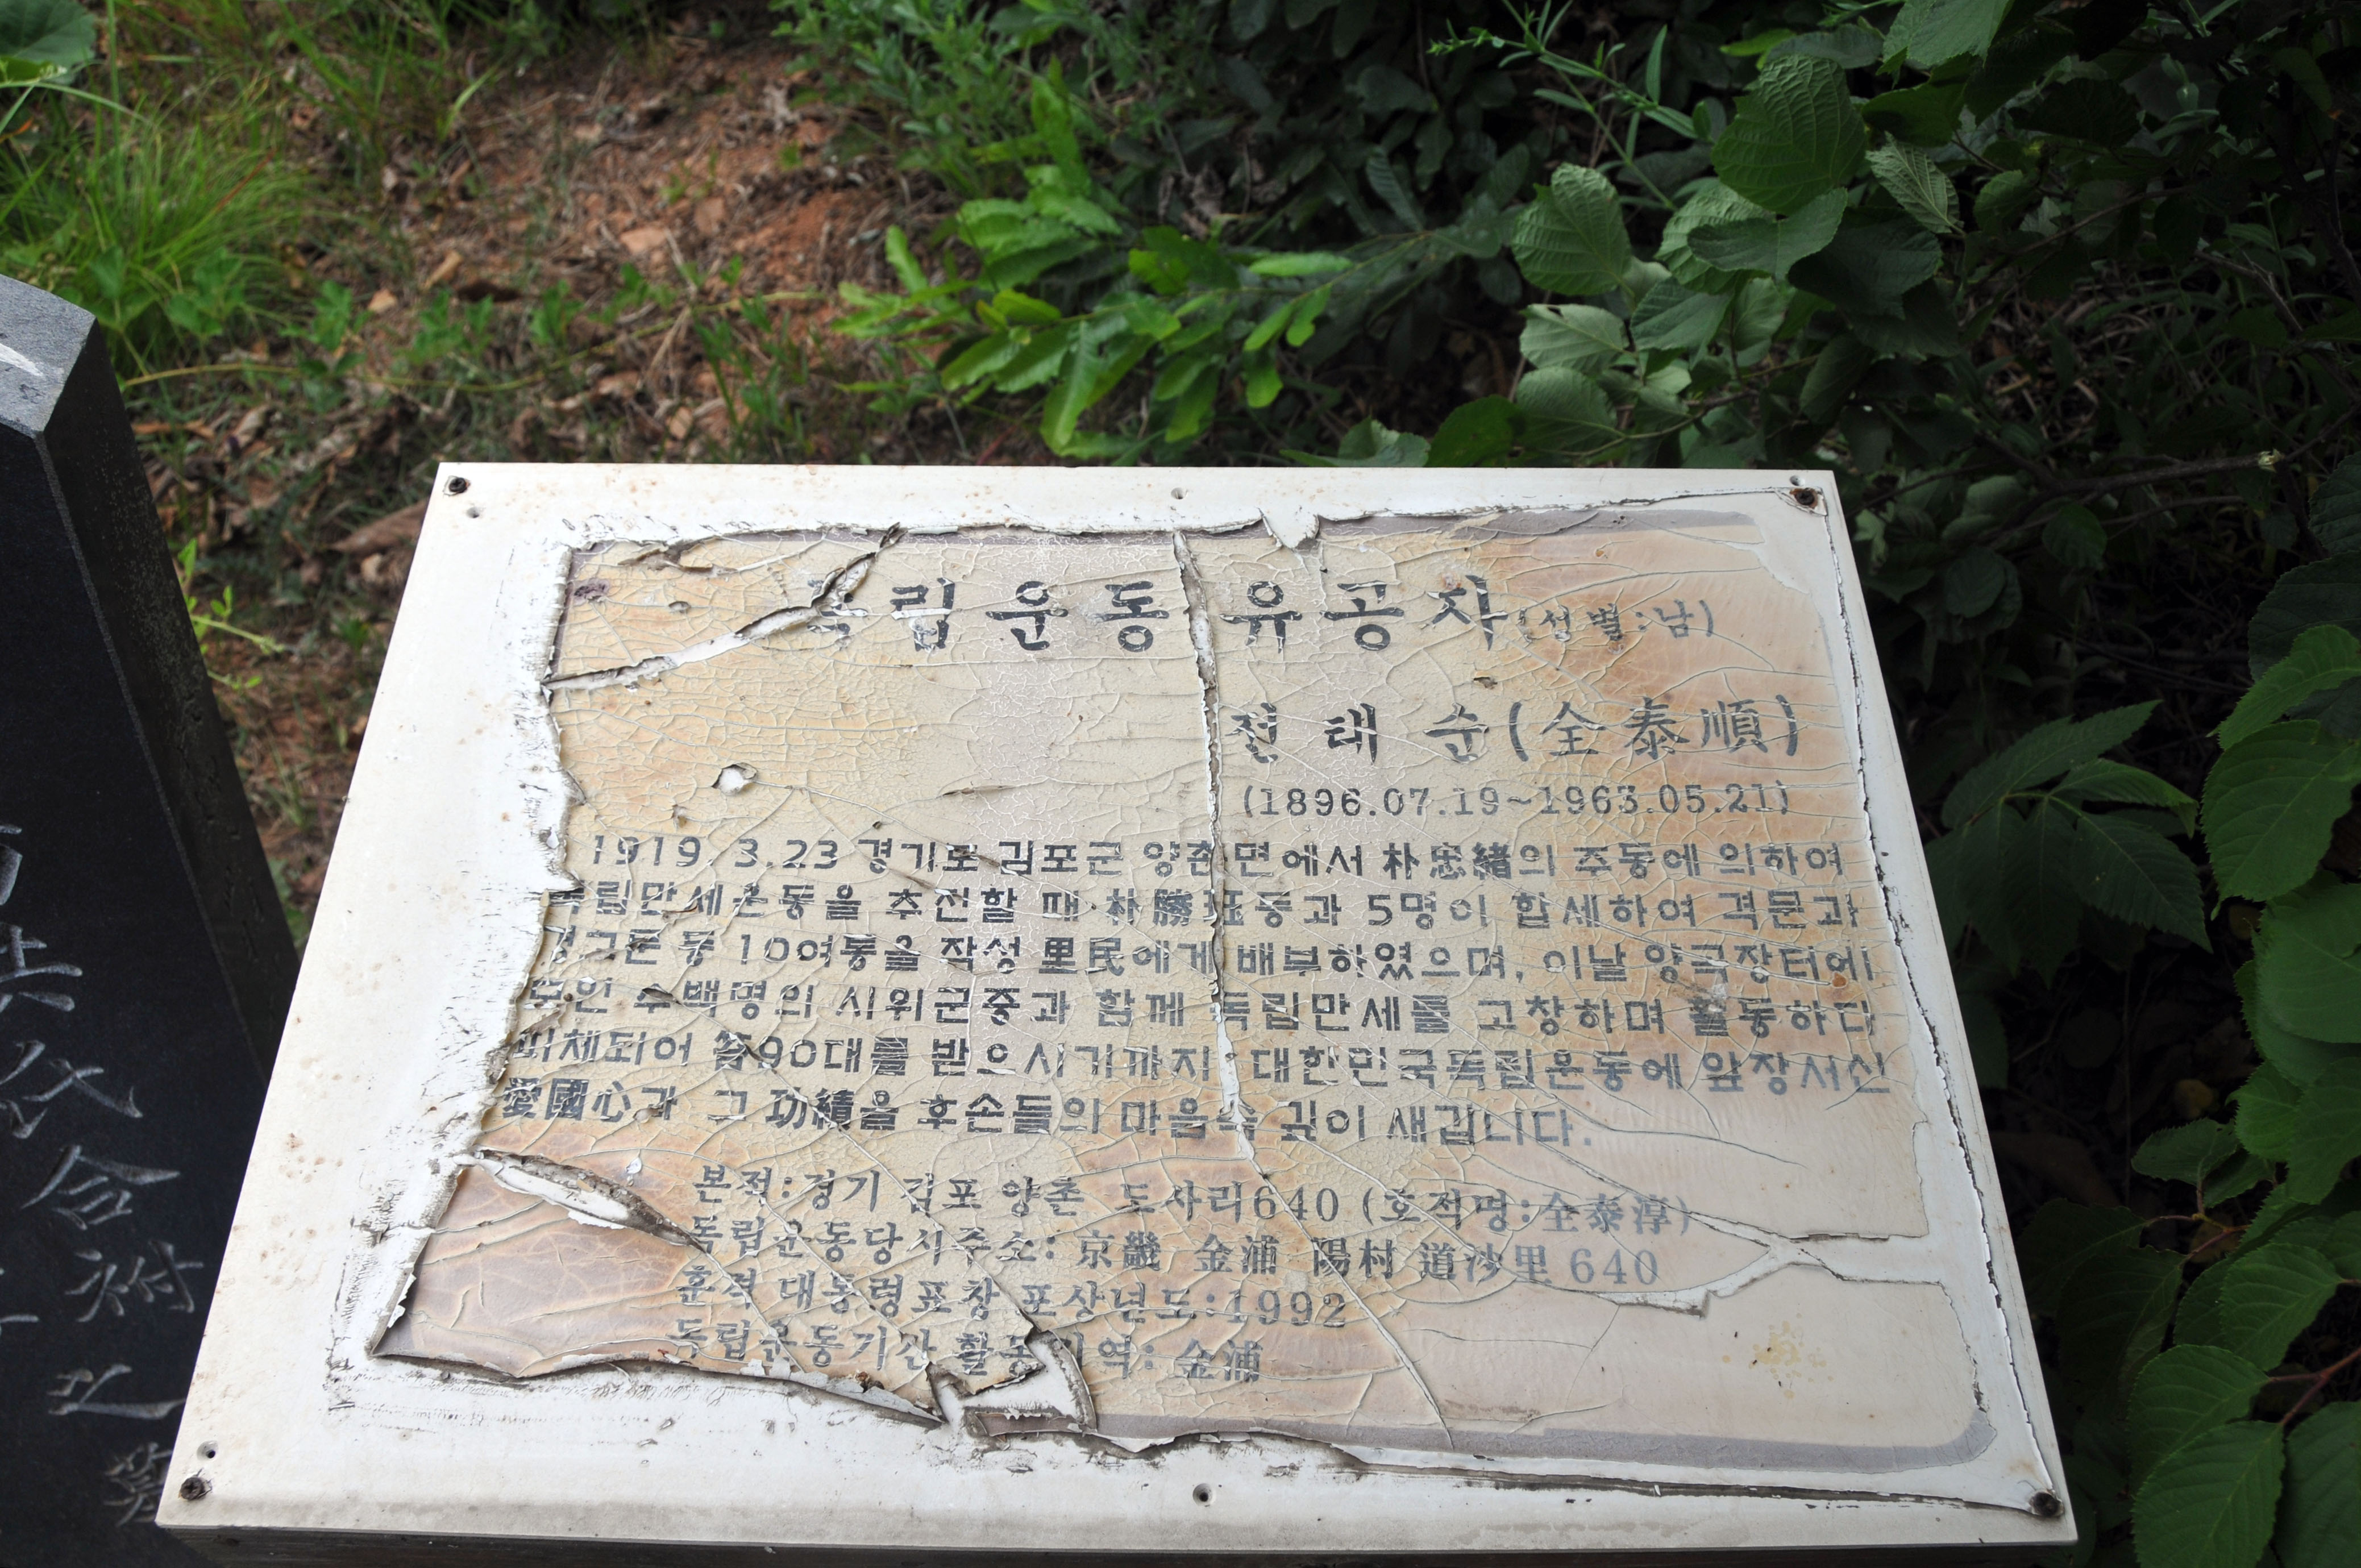 독립운동유공자(성별:남)
전태순(全泰順)
(1896.07.19~1963.05.21)
1919. 3.23 경기도 김포군 양촌면에서 朴忠緖의 주동에 의하여
독립만세운동을 추진할 때 朴勝珏등과 5명이 합세하여 격문과
경고문 등 10여통을 작성 里民에게 배부하였으며, 이날 양곡장터에
모인 수백명의 시위군중과 함께 독립만세를 고창하며 활동하다
피체되어 笞90대를 받으시기까지 대한민국독립운동에 앞장서신
愛國心과 그 功績을 후손들의 마음속 깊이 새깁니다.
본적:경기 김포 양촌 도사리640 (호적명:全泰淳)
독립운동당시주소: 京畿 金浦 陽村 道沙里 640
훈격 대통령표창 포상년도:1992
독립운동기간 활동지역: 金浦